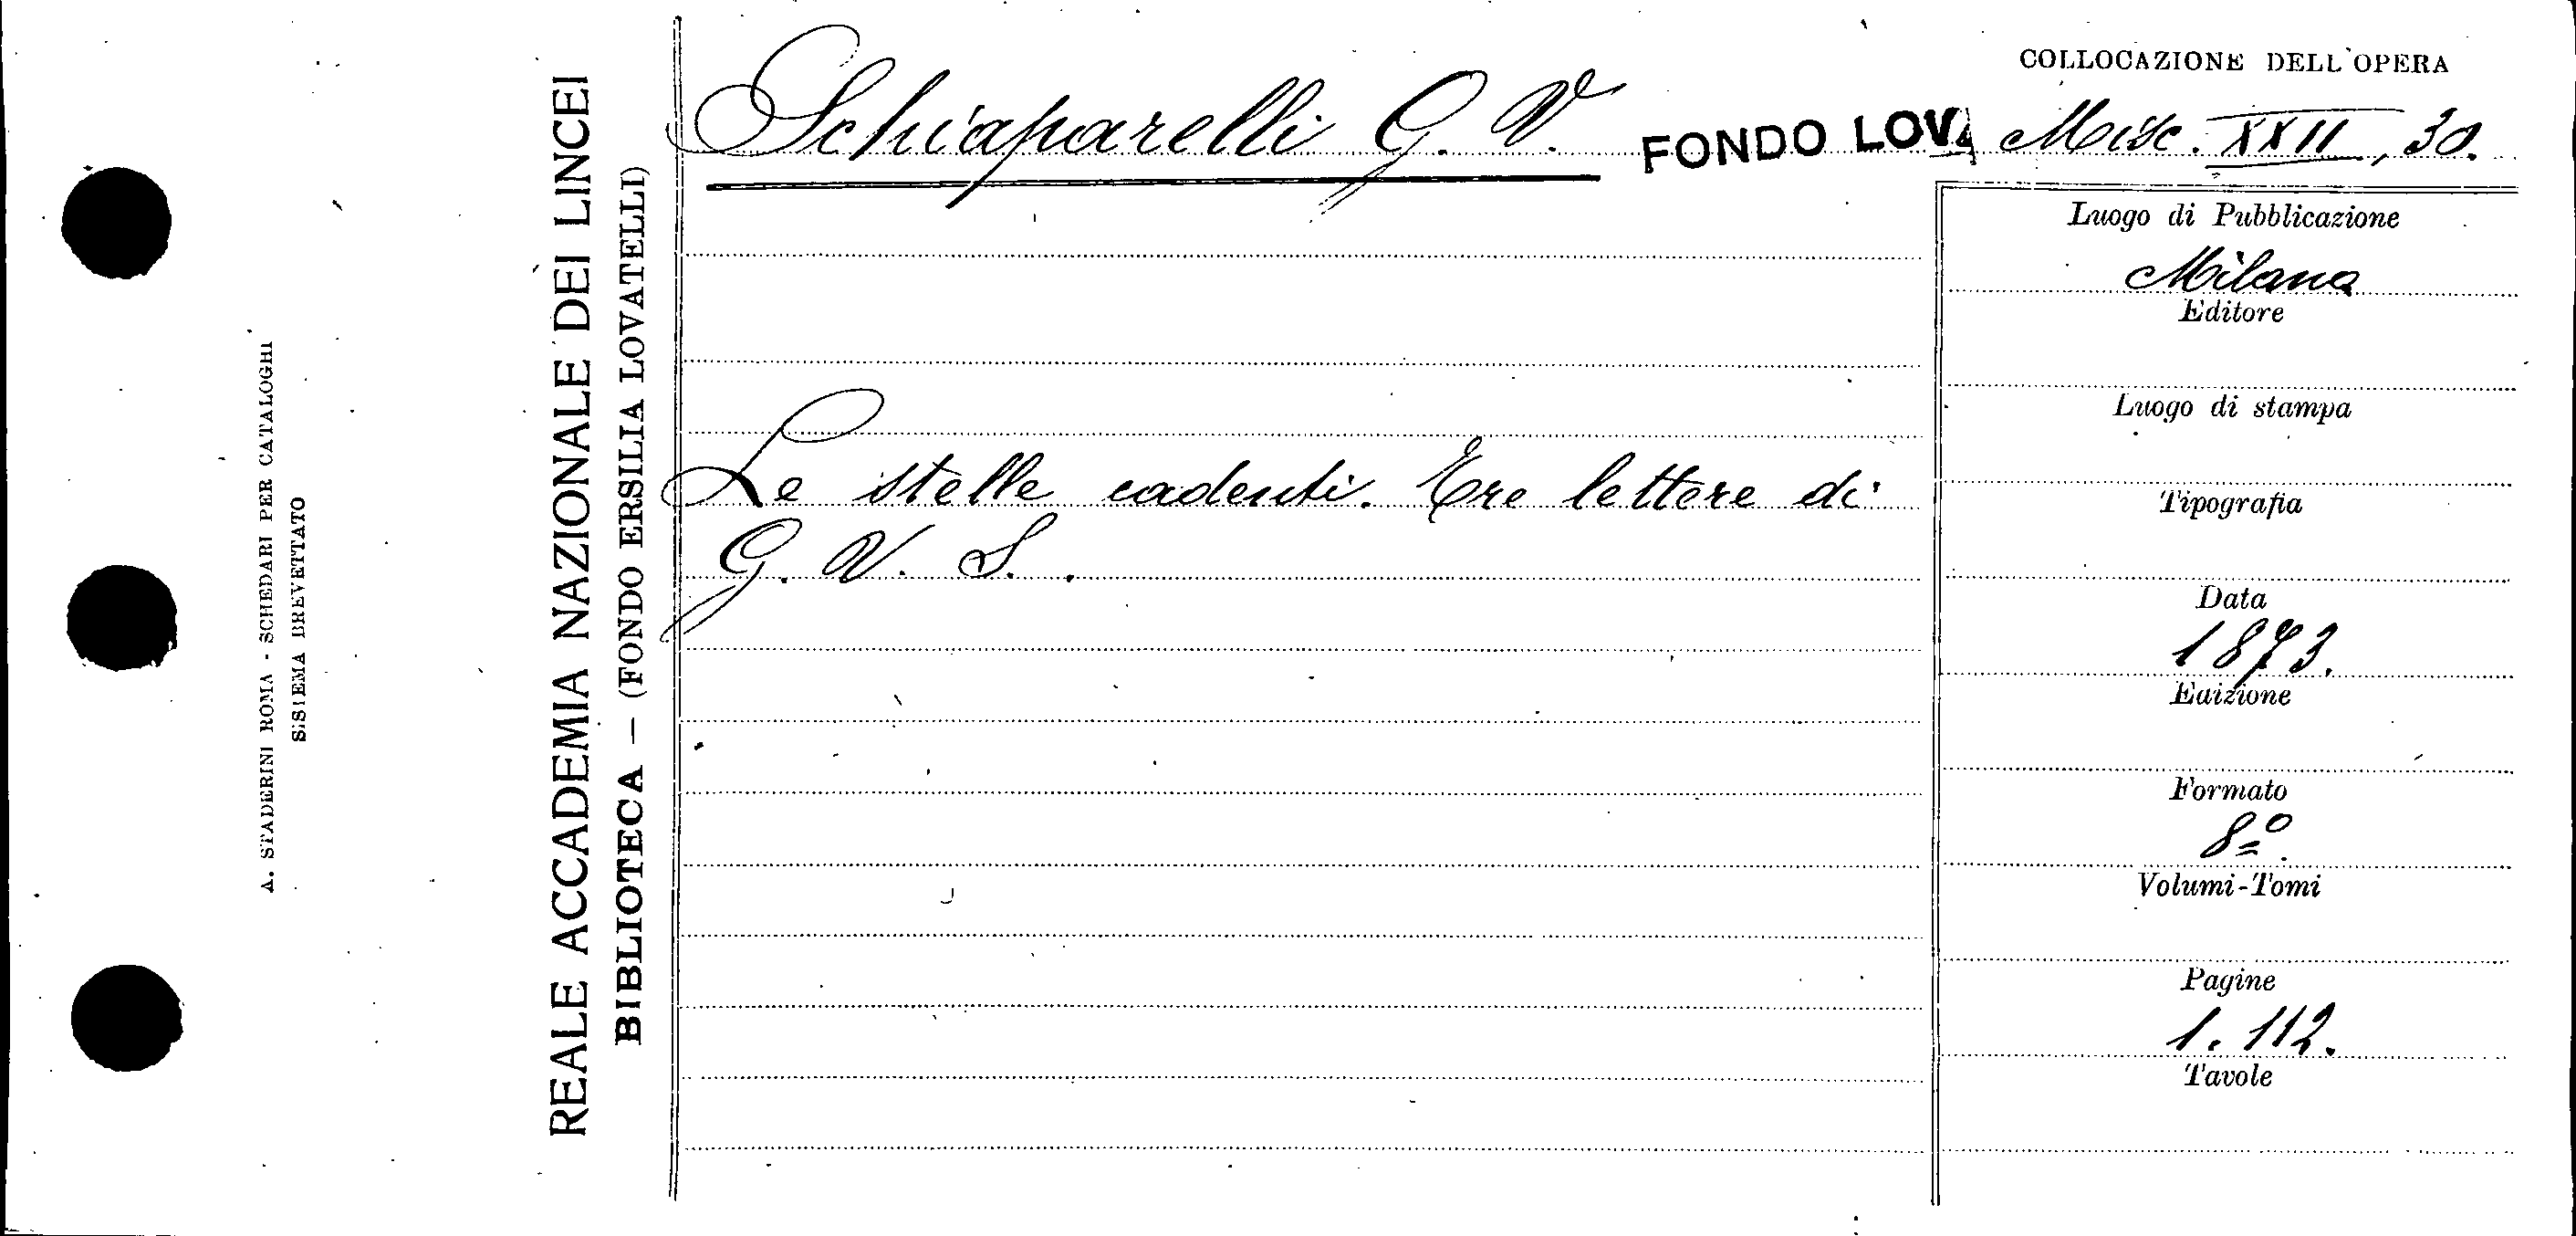 A. STADERINI ROMA - SCHEDARI PER CATALOGHI
SISTEMA BREVETTATO
REALE ACCADEMIA NAZIONALE DEI LINCEI
BIBLIOTECA — (FONDO ERSILIA LOVATELLI)
Schiaparelli G. V.
FONDO LOVA
Le stelle cadenti. Tre lettere di
G. V. S.
COLLOCAZIONE DELL'OPERA
Misc. XXII, 30.
Luogo di Pubblicazione
Milano
Editore
Luogo di stampa
Tipografia
Data
1873.
Edizione
Formato
8º.
Volumi-Tomi
Pagine
1. 112.
Tavole